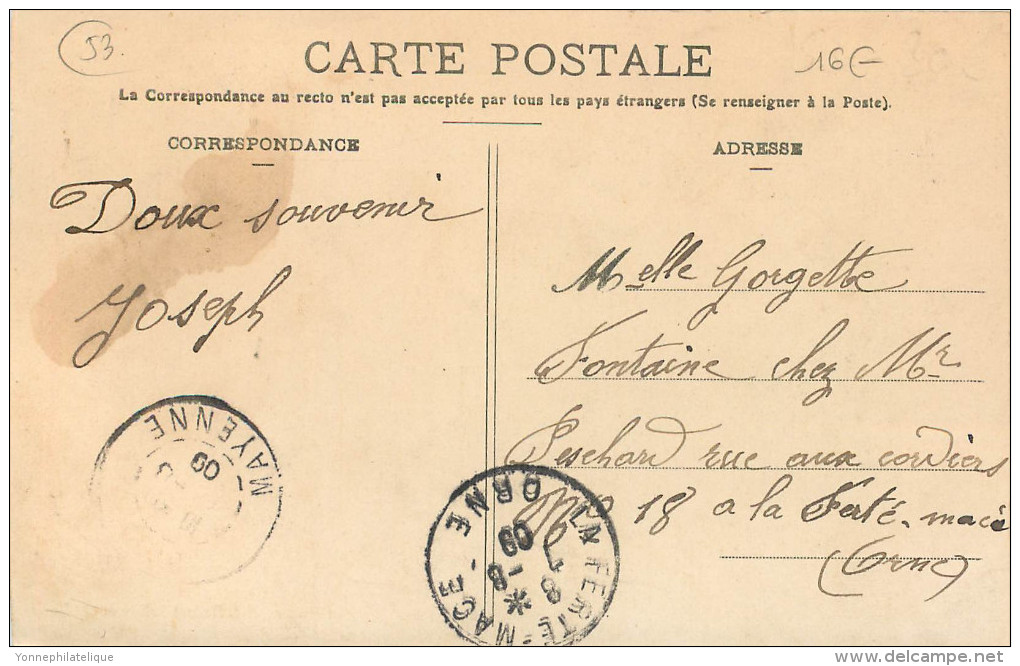 53.
CARTE POSTALE
16€-
La Correspondance au recto n'est pas acceptée par tous les pays étrangers (Se renseigner à la Poste).
CORRESPONDANCE
Doux souvenir
Joseph
MAYENNE
09
ADRESSE
Melle Gorgette
Fontaine chez Mr
Peschard rue aux cordiers
No 18 a la Ferté-macé
(Orne)
LA FERTÉ-MACÉ
ORNE
8-8
09
Yonnephilatelique
www.delcampe.net